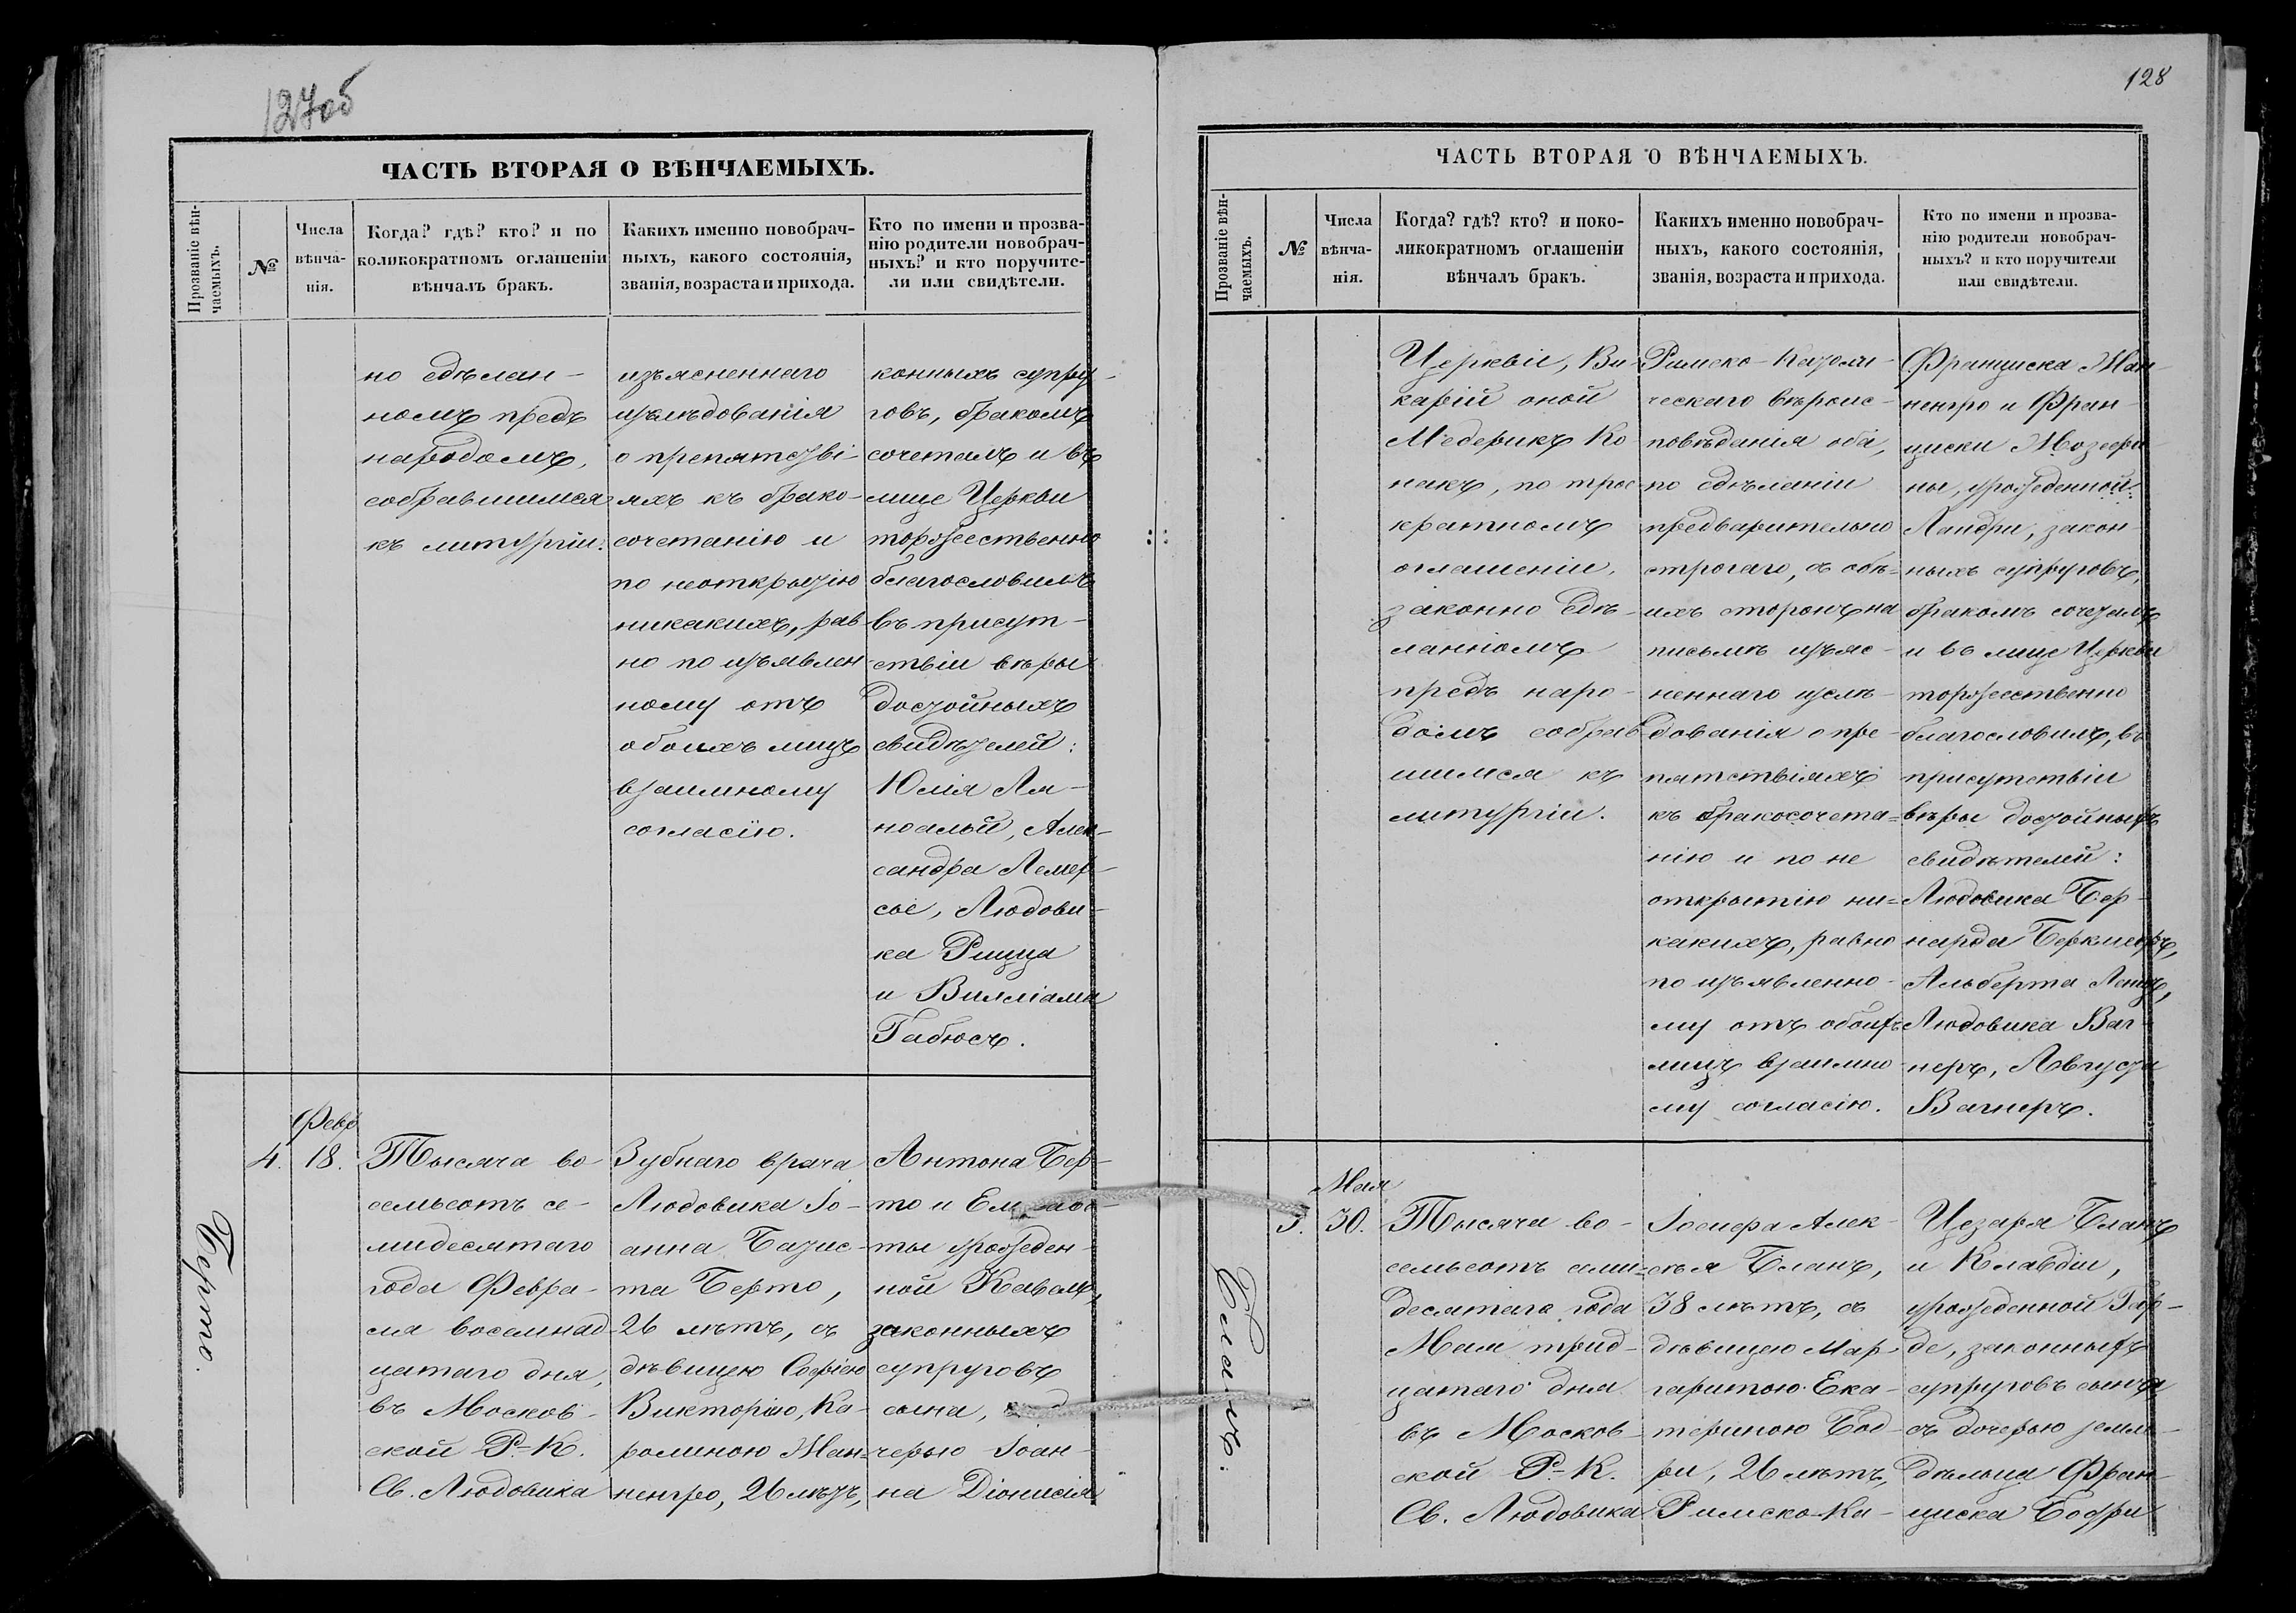 127об
ЧАСТЬ ВТОРАЯ О ВѢНЧАЕМЫХЪ.
Прозваніе вѣн-
чаемыхъ.
№
Числа
вѣнча-
нія.
Когда? гдѣ? кто? и по
коликократномъ оглашеніи
вѣнчалъ бракъ.
Какихъ именно новобрач-
ныхъ, какого состоянія,
званія, возраста и прихода.
Кто по имени и прозва-
нію родители новобрач-
ныхъ? и кто поручите-
ли или свидѣтели.
но сдѣлан-
номъ предъ
народомъ,
собравшимся
къ литургіи.
изъясненнаго
изслѣдованія
о препятстві-
яхъ къ брако-
сочетанію и
по неоткрытію
никакихъ, рав
но по изъявлен
ному отъ
обоихъ лицъ
взаимному
согласію.
конныхъ супру-
говъ, бракомъ
сочеталъ и въ
лице Церкви
торжественно
благословилъ
въ присут-
ствіи вѣры
достойныхъ
свидѣтелей:
Юлія Ля-
ноальи, Алек-
сандра Лемер-
сье, Людови-
ка Рицца
и Вилліама
Габюсъ.
Берто.
4.
Февр
18.
Тысяча во-
семьсотъ се-
мидесятаго
года Февра-
ля восемнад-
цатаго дня,
въ Москов-
ской Р.-К.
Св. Людовика
Зубнаго врача
Людовика Іо-
анна Батис-
та Берто,
26 лѣтъ, съ
дѣвицею Софіею
Викторіею, Ка-
ролиною Ман-
ненгро, 26 лѣтъ,
Антона Бер-
то и
ты урожден-
ной Каваль,
законныхъ
супруговъ
сына,
черью Іоан-
на Діонисія
128
ЧАСТЬ ВТОРАЯ О ВѢНЧАЕМЫХЪ.
Прозваніе вѣн-
чаемыхъ.
№
Числа
вѣнча-
нія.
Когда? гдѣ? кто? и поко-
ликократномъ оглашеніи
вѣнчалъ бракъ.
Какихъ именно новобрач-
ныхъ, какого состоянія,
званія, возраста и прихода.
Кто по имени и прозва-
нію родители новобрач-
ныхъ? и кто поручители
или свидѣтели.
Церквіи, Ви-
карій оной
Медерикъ Ко
накъ, по трое
кратномъ
оглашеніи,
законно сдѣ-
ланномъ
предъ наро-
домъ собрав
шимся къ
литургіи.
Римско-Католи-
ческаго вѣроис-
повѣданія оба,
по сдѣланіи
предварительно
строгаго, съ обѣ-
ихъ сторонъ на
письмѣ изъяс-
неннаго изслѣ-
дованія о пре-
пятствіяхъ
къ бракосочета-
нію и по не
открытію ни-
какихъ, равно
по изъявленно-
му отъ обоихъ
лицъ взаимно
му согласію.
Франциска Ман-
ненгро и Фран-
циски Мозефи-
ны, урожденной
Ландри, закон-
ныхъ супруговъ,
бракомъ сочеталъ
и въ лице Церкви
торжественно
благословилъ, въ
присутствіи
вѣры достойныхъ
свидѣтелей:
Людовика Бер-
нарда Беркмеръ,
Альберта Ленцъ,
Людовика Ваг-
неръ, Августа
Вагнеръ.
Бланъ.
5.
Мая
30.
Тысяча во-
семьсотъ семи-
десятаго года
Мая трид-
цатаго дня
въ Москов-
ской Р.-К.
Св. Людовика
Іосифа Алек-
сѣя Бланъ,
38 лѣтъ, съ
дѣвицею Мар-
гаритою Ека-
териною Бод-
ри, 26 лѣтъ,
Римско-Ка-
Цезаря Бланъ
и Клавдіи,
урожденной Гар-
де, законныхъ
супруговъ сына
съ дочерью земле-
дѣльца Фран-
циска Бодри